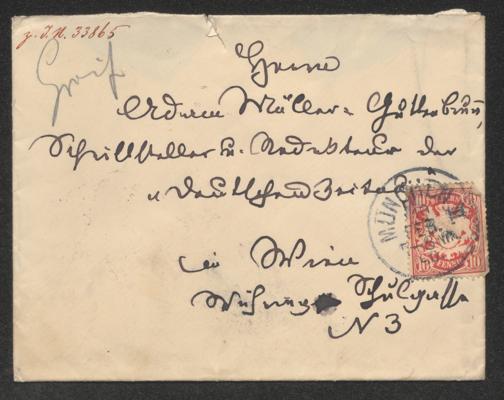 z. I. N. 33865
Greif
Herrn
Adam Müller-Guttenbrunn,
Schriftsteller u. Redakteur der
„Deutschen Zeitung"
in Wien
Währing Schulgasse
N 3
MÜNCHEN
10 10
PFENNIG